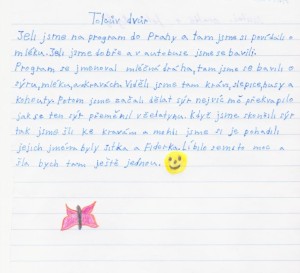 Toulcův dvůr
Jeli jsme na program do Prahy a tam jsme si povídali o
mléku. Jeli jsme dobře a v autobuse jsme se bavili.
Program se jmenoval mléčná dráha, tam jsme se bavili o
sýru, mléku, a o kravách. Viděli jsme tam krávy, slepice, husy a
kohouty. Potom jsme začali dělat sýr nejvíc mě překvapilo
jak se ten sýr přeměnil v šlehačku. Když jsme skončili sýr
tak jsme šli ke kravám a mohli jsme si je pohladit
jejich jména byly Jitka a Fiderka. Líbilo se mi to moc a
šla bych tam ještě jednou.